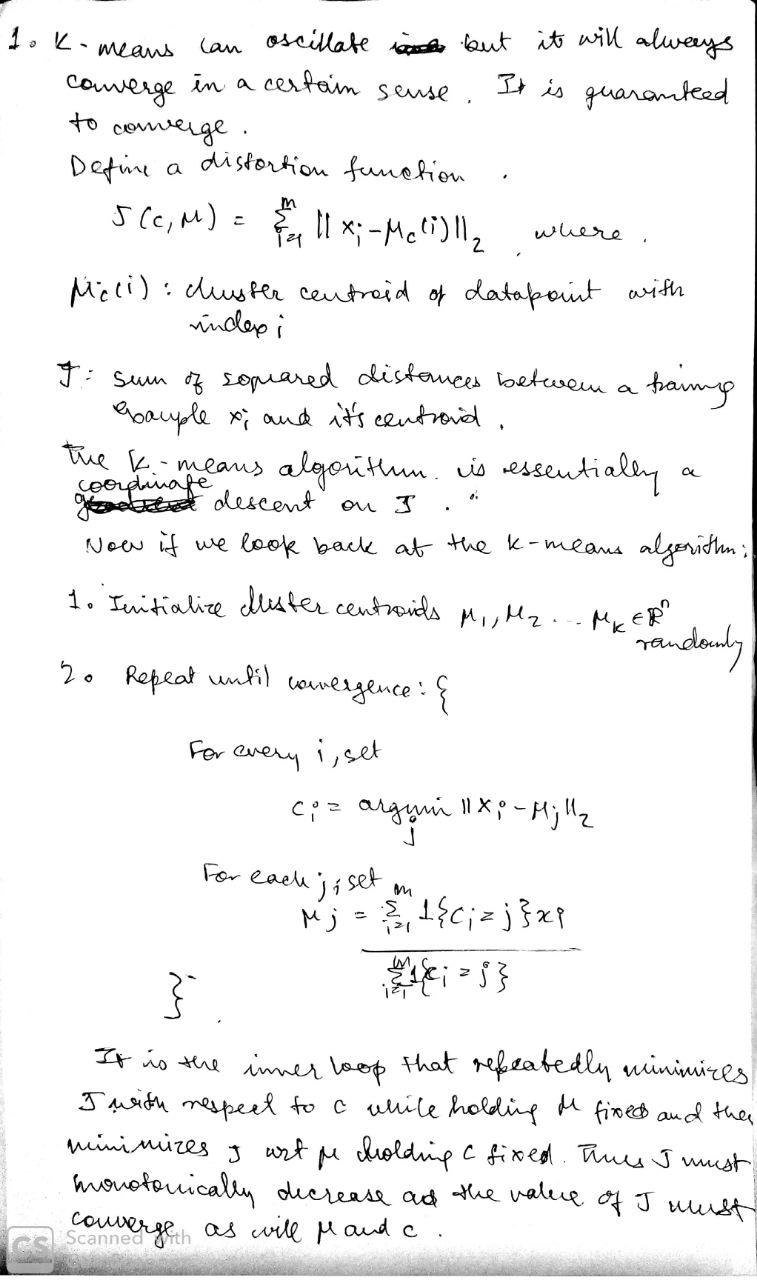 1. K-means can oscillate but it will always
converge in a certain sense. It is guaranteed
to converge.
Define a distortion function.
J(c, μ) = Σ_{i=1}^{m} || x_i - μ_c(i) ||_2, where.
μ_c(i) : cluster centroid of datapoint with
index i
J: sum of squared distances between a training
example x_i and it's centroid.
The K-means algorithm is essentially a
coordinate descent on J.
Now if we look back at the k-means algorithm:
1. Initialize cluster centroids μ_1, μ_2 ... μ_K ∈ ℝ^n
randomly
2. Repeat until convergence: {
For every i, set
c_i = argmin_j || x_i - μ_j ||_2
For each j, set
μ_j = Σ_{i=1}^{m} 1{c_i = j} x_i
Σ_{i=1}^{m} 1{c_i = j}
}
It is the inner loop that repeatedly minimizes
J with respect to c while holding μ fixed and then
minimizes J wrt μ holding c fixed. Thus J must
monotonically decrease and the value of J must
converge as will μ and c.
CS Scanned with